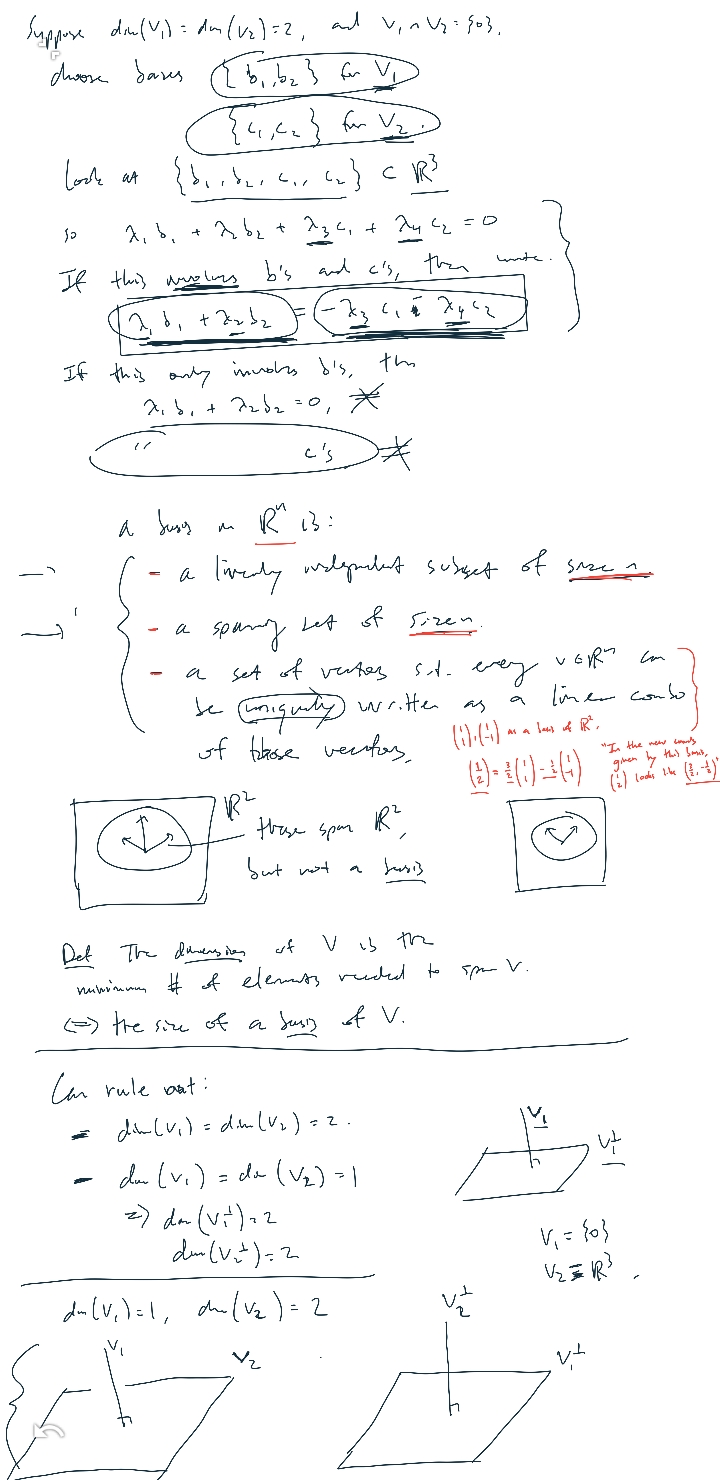 Suppose dim(V₁) = dim(V₂) = 2, and V₁ ∩ V₂ = {0}.
choose bases {b₁, b₂} for V₁
{c₁, c₂} for V₂.
Look at {b₁, b₂, c₁, c₂} ⊂ ℝ³
so λ₁b₁ + λ₂b₂ + λ₃c₁ + λ₄c₂ = 0
If this involves b's and c's, then write.
λ₁b₁ + λ₂b₂ = -λ₃c₁ - λ₄c₂
If this only involves b's, then
λ₁b₁ + λ₂b₂ = 0,
" c's
a basis in ℝⁿ is:
- a linearly independent subset of size n
- a spanning set of size n.
- a set of vectors s.t. every v∈ℝⁿ can
be uniquely written as a linear combo
of those vectors.
(1 1), (1 -1) as a basis of ℝ².
(1 2) = 3/2 (1 1) - 1/2 (1 -1)
"In the new coords
given by this basis,
(1 2) looks like (3/2, -1/2)"
ℝ²
these span ℝ²,
but not a basis
Def The dimension of V is the
minimum # of elements needed to span V.
⟺ the size of a basis of V.
Can rule out:
- dim(V₁) = dim(V₂) = 2.
- dim(V₁) = dim(V₂) = 1
⇒ dim(V₁⊥) = 2
dim(V₂⊥) = 2
V₁
V₁⊥
V₁ = {0}
V₂ = ℝ³.
dim(V₁) = 1, dim(V₂) = 2
V₁
V₂
V₂⊥
V₁⊥